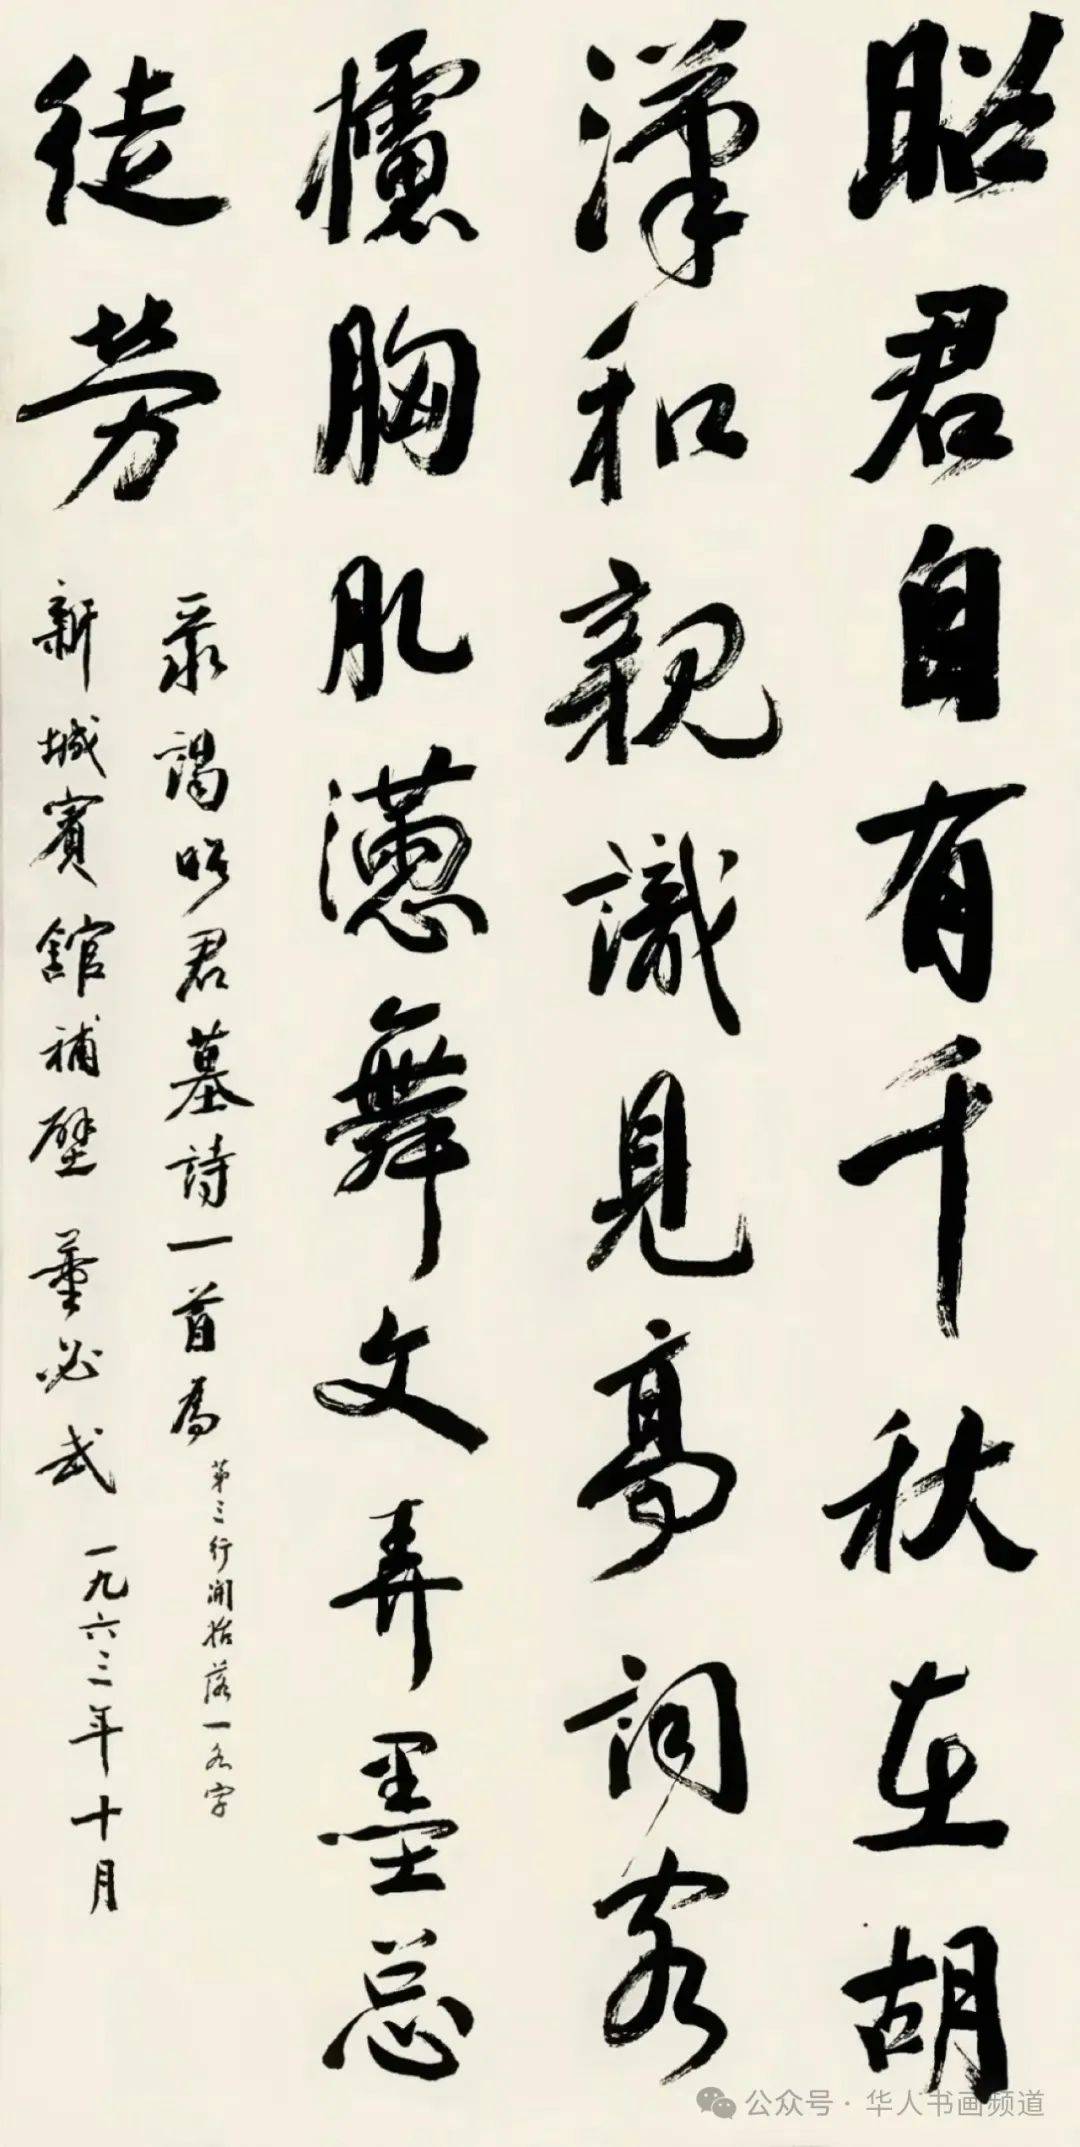 昭君自有千秋在胡
漢和親識見高詞客
攄胸肌懣舞文弄墨总
徒劳
录謁昭君墓詩一首為
第三行開始落一名字
新城賓館補壁 董必武
一九六三年十月
公众号·华人书画频道